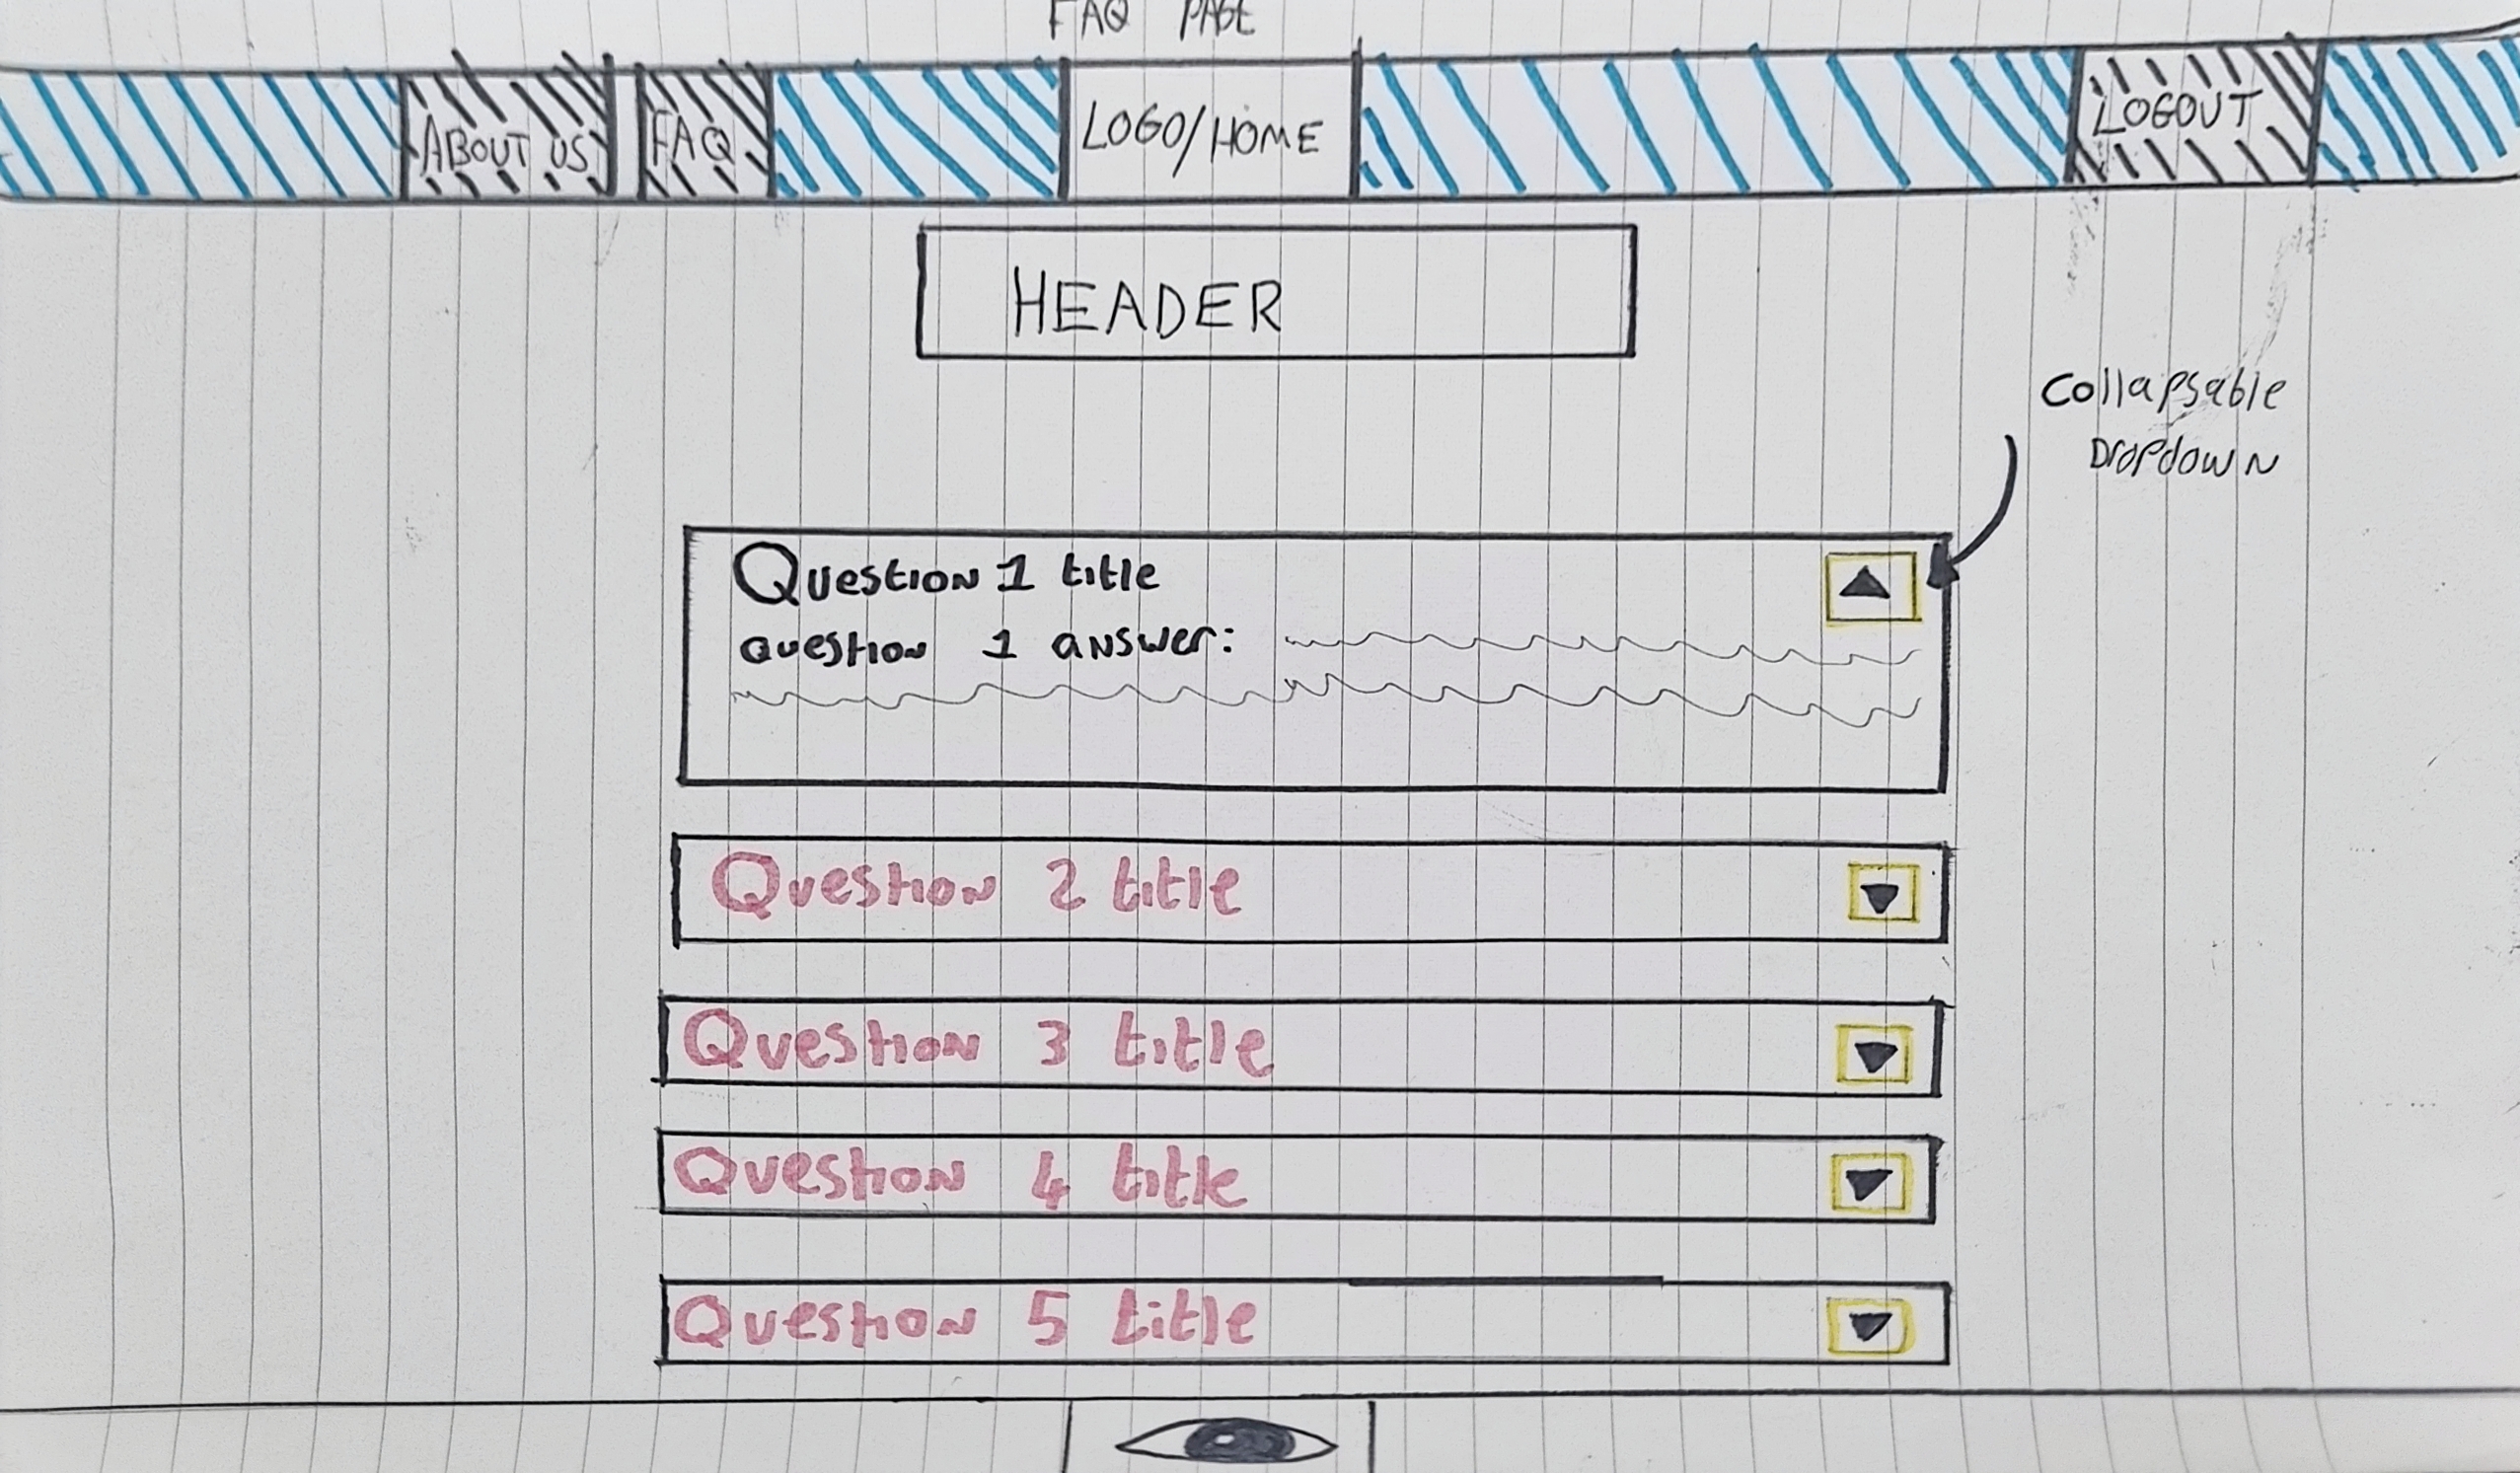 FAQ PAGE
ABOUT US FAQ LOGO/HOME LOGOUT
HEADER
Collapsable
Dropdown
Question 1 title
question 1 answer:
Question 2 title
Question 3 title
Question 4 title
Question 5 title